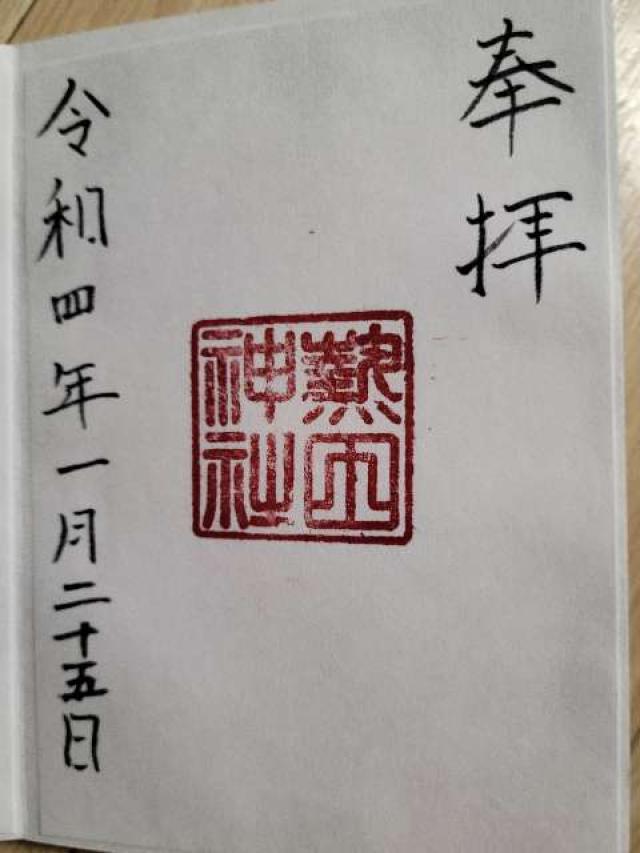 奉拝
熱田
神社
令和四年一月二十五日